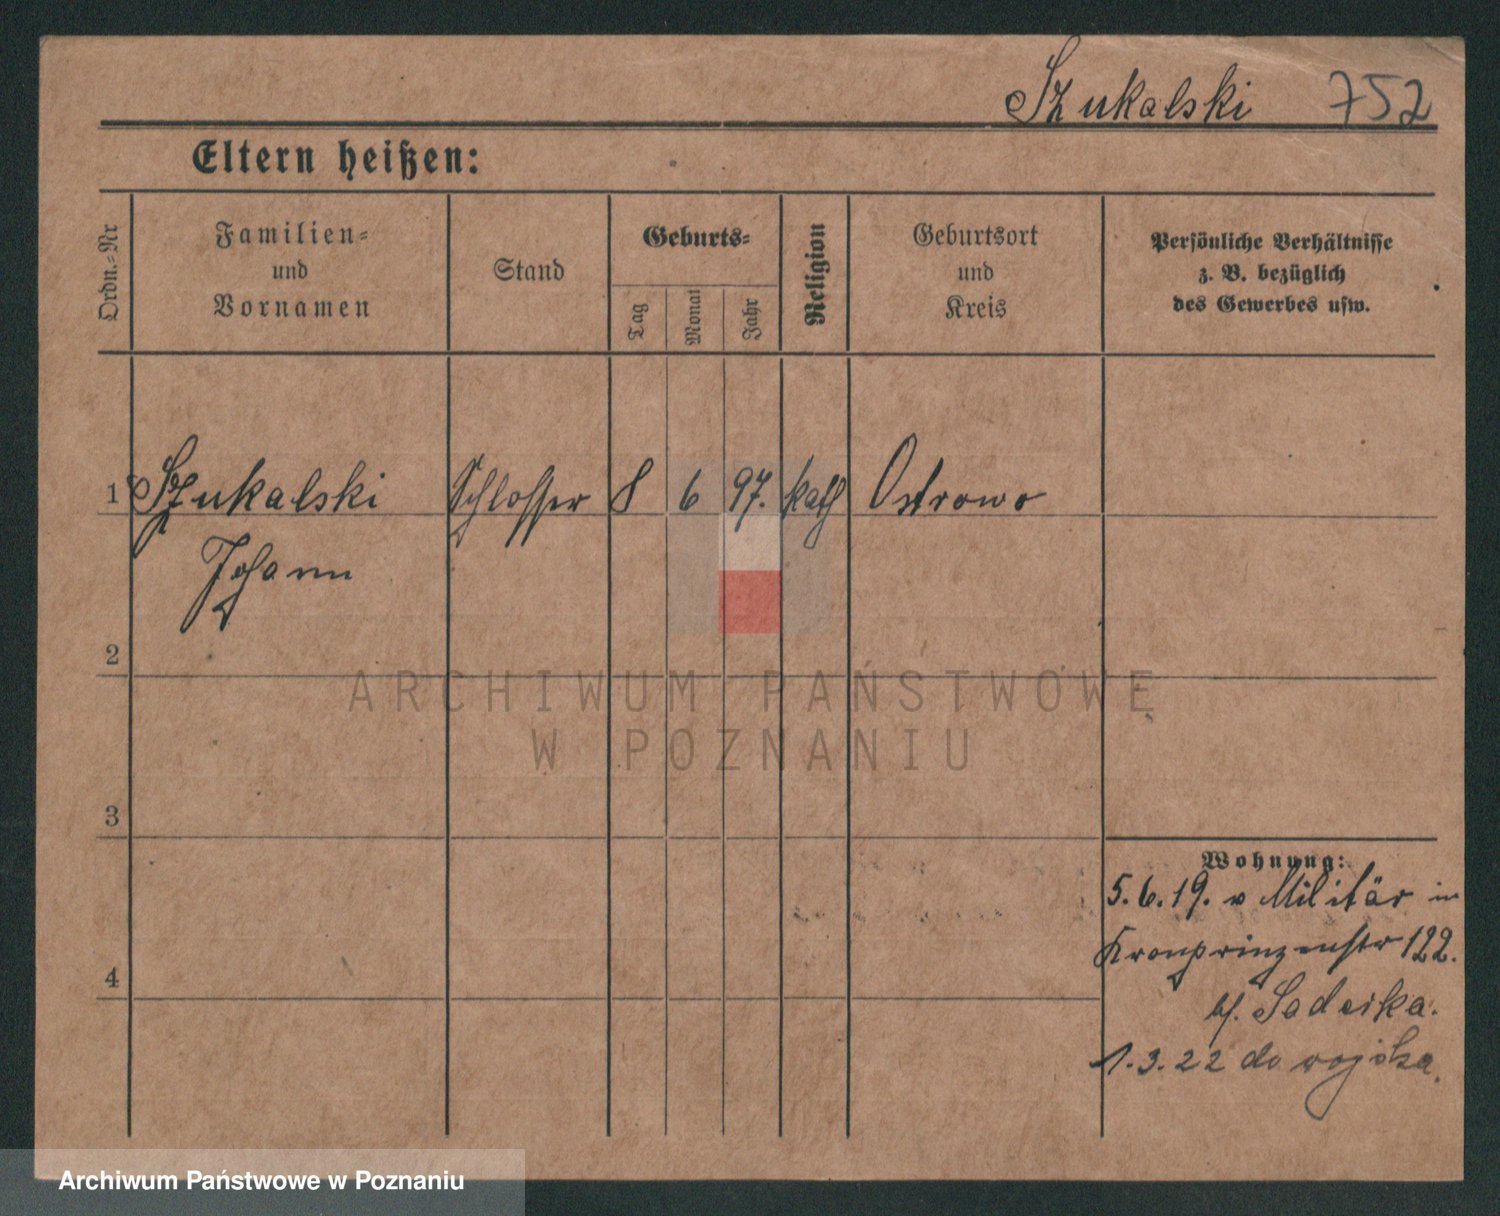 Szukalski 752
Eltern heißen:
Ordn.-Nr
Familien-
und
Vornamen
Stand
Geburts-
Tag
Monat
Jahr
Religion
Geburtsort
und
Kreis
Persönliche Verhältnisse
z. B. bezüglich
des Gewerbes usw.
1 Szukalski Schlosser 8 6 97. kath Ostrowo
Johann
2
3
4
Wohnung:
5.6.19. v Militär in
Kronprinzenstr 122.
b/.
1.3.22 do wojska.
ARCHIWUM PAŃSTWOWE
W POZNANIU
Archiwum Państwowe w Poznaniu